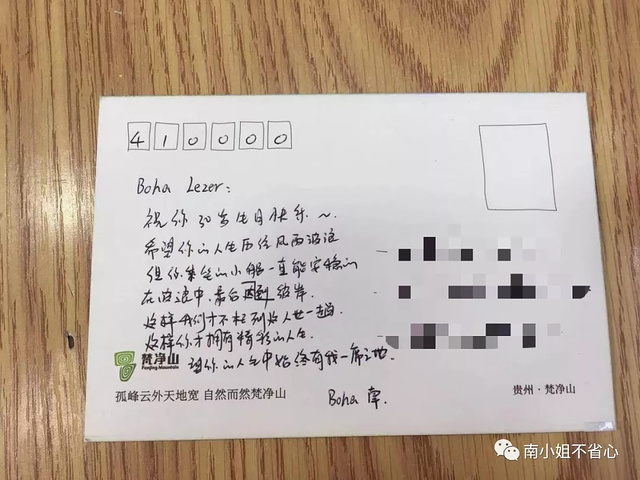 410000
Boha Lezer:
祝你30岁生日快乐~
希望你的人生历经风雨波浪
但你乘坐的小船一直能安稳的
在波浪中,最后回到彼岸.
这样我们才不枉到这人世一趟
这样你才拥有精彩的人生.
望你的人生中始终有我一席之地.
Boha 南.
梵净山
Fanjing Mountain
孤峰云外天地宽 自然而然梵净山
贵州·梵净山
南小姐不省心